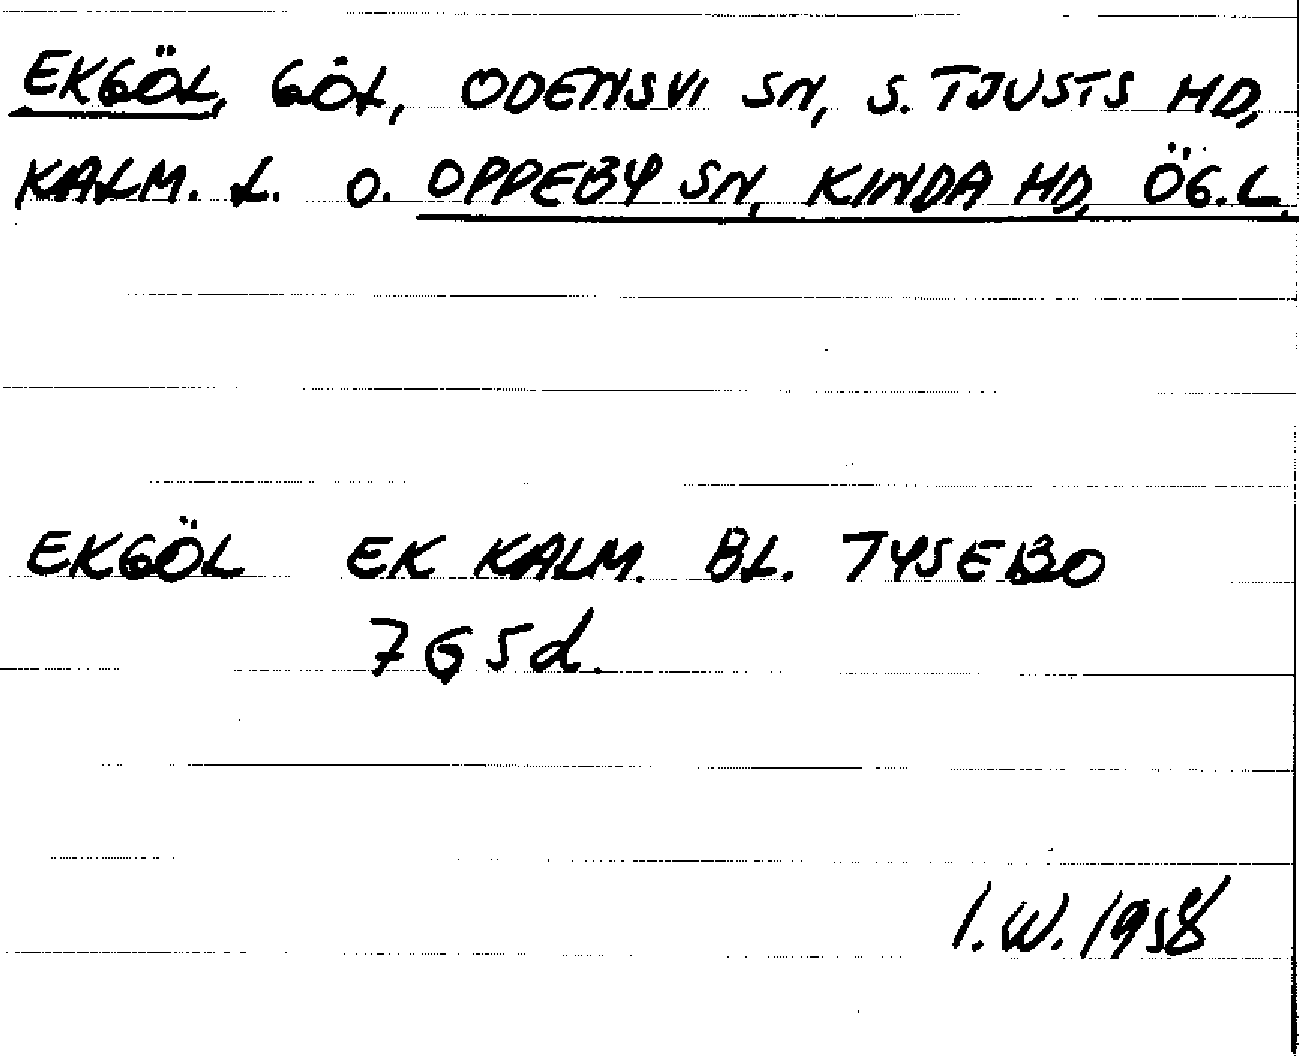 EKGÖL, GÖL, ODENSVI SN, S. TJUSTS HD,
KALM. L. O. OPPEBY SN, KINDA HD, ÖG. L.
EKGÖL EK KALM. BL. TYSEBO
765d.
I.W. 1958